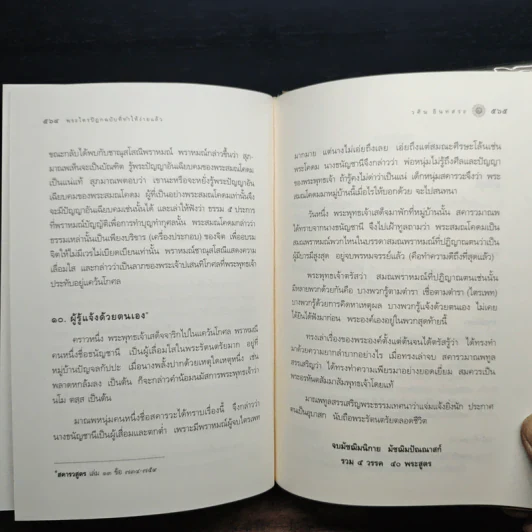 ๕๖๔ พระไตรปิฎกฉบับที่ทำให้ง่ายแล้ว
ขณะกลับได้พบกับชาณุสโสณิพราหมณ์ พราหมณ์กล่าวขึ้นว่า สุภ-
มาณพเห็นจะเป็นบัณฑิต รู้พระปัญญาอันเฉียบคมของพระสมณโคดม
เป็นแน่แท้ สุภมาณพตอบว่า เขานะหรือจะหยั่งรู้พระปัญญาอัน
เฉียบคมของพระสมณโคดม ผู้ที่เป็นอย่างพระสมณโคดมเท่านั้นจึง
จะมีปัญญาอันเฉียบคมเช่นนั้นได้ และเล่าให้ฟังว่า ธรรม ๕ ประการ
ที่พราหมณ์บัญญัติเพื่อการทำบุญทำกุศลนั้น พระสมณโคดมกล่าวว่า
ธรรมเหล่านั้นเป็นเพียงบริขาร (เครื่องประกอบ) ของจิต เพื่ออบรม
จิตให้ไม่มีเวรไม่เบียดเบียนเท่านั้น พราหมณ์ชาณุสโสณิแสดงความ
เลื่อมใส และกล่าวว่าเป็นลาภของพระเจ้าปเสนทิโกศลที่พระพุทธเจ้า
ประทับอยู่แคว้นโกศล
๑๐. ผู้รู้แจ้งด้วยตนเอง*
คราวหนึ่ง พระพุทธเจ้าเสด็จจาริกไปในแคว้นโกศล พราหมณี
คนหนึ่งชื่อธนัญชานี เป็นผู้เลื่อมใสในพระรัตนตรัยมาก อยู่ที่
หมู่บ้านปัจจลกัปปะ เมื่อนางพลั้งปากด้วยเหตุใดเหตุหนึ่ง เช่น
พลาดหกล้มลง เป็นต้น ก็จะกล่าวคำนอบนมัสการพระพุทธเจ้าว่า
นโม ตสฺส เป็นต้น
มาณพหนุ่มคนหนึ่งชื่อสคารวะได้ทราบเรื่องนี้ จึงกล่าวว่า
นางธนัญชานีเป็นผู้เสื่อมและตกต่ำ เพราะมีพราหมณ์ผู้จบไตรเพท
*สคารวสูตร เล่ม ๑๓ ข้อ ๗๓๔-๗๕๙
วศิน อินทสระ ๕๖๕
มากมาย แต่นางไม่เอ่ยถึงเลย เอ่ยถึงแต่สมณะศีรษะโล้นเช่น
พระโคดม นางธนัญชานีจึงกล่าวว่า พ่อหนุ่มไม่รู้ถึงศีลและปัญญา
ของพระพุทธเจ้า ถ้ารู้คงไม่ด่าว่าเป็นแน่ เด็กหนุ่มสคารวะจึงว่า พระ
สมณโคดมมาหมู่บ้านนี้เมื่อไรให้บอกด้วย จะไปสนทนา
วันหนึ่ง พระพุทธเจ้าเสด็จมาพักที่หมู่บ้านนั้น สคารวมาณพ
ได้ทราบจากนางธนัญชานี จึงไปเฝ้าทูลถามว่า พระสมณโคดมเป็น
สมณพราหมณ์พวกไหนในบรรดาสมณพราหมณ์ที่ปฏิญาณตนว่าเป็น
ผู้มีบารมีสูงสุด อยู่จบพรหมจรรย์แล้ว (คือทำความดีถึงที่สุดแล้ว)
พระพุทธเจ้าตรัสว่า สมณพราหมณ์ที่ปฏิญาณตนเช่นนั้น
มีหลายพวกด้วยกันคือ บางพวกรู้ตามตำรา เชื่อตามตำรา (ไตรเพท)
บางพวกรู้ด้วยการคิดหาเหตุผล บางพวกรู้แจ้งด้วยตนเอง ไม่เคย
ได้ยินได้ฟังมาก่อน พระองค์เองอยู่ในพวกสุดท้ายนี้
ทรงเล่าเรื่องของพระองค์ตั้งแต่ต้นจนได้ตรัสรู้ว่า ได้ทรงทำ
มาด้วยความยากลำบากอย่างไร เมื่อทรงเล่าจบ สคารวมาณพทูล
สรรเสริญว่า ได้ทรงทำความเพียรมาอย่างยอดเยี่ยม สมควรเป็น
พระอรหันตสัมมาสัมพุทธเจ้าโดยแท้
มาณพทูลสรรเสริญพระธรรมเทศนาว่าแจ่มแจ้งยิ่งนัก ประกาศ
ตนเป็นอุบาสก นับถือพระรัตนตรัยตลอดชีวิต
จบมัชฌิมนิกาย มัชฌิมปัณณาสก์
รวม ๕ วรรค ๕๐ พระสูตร